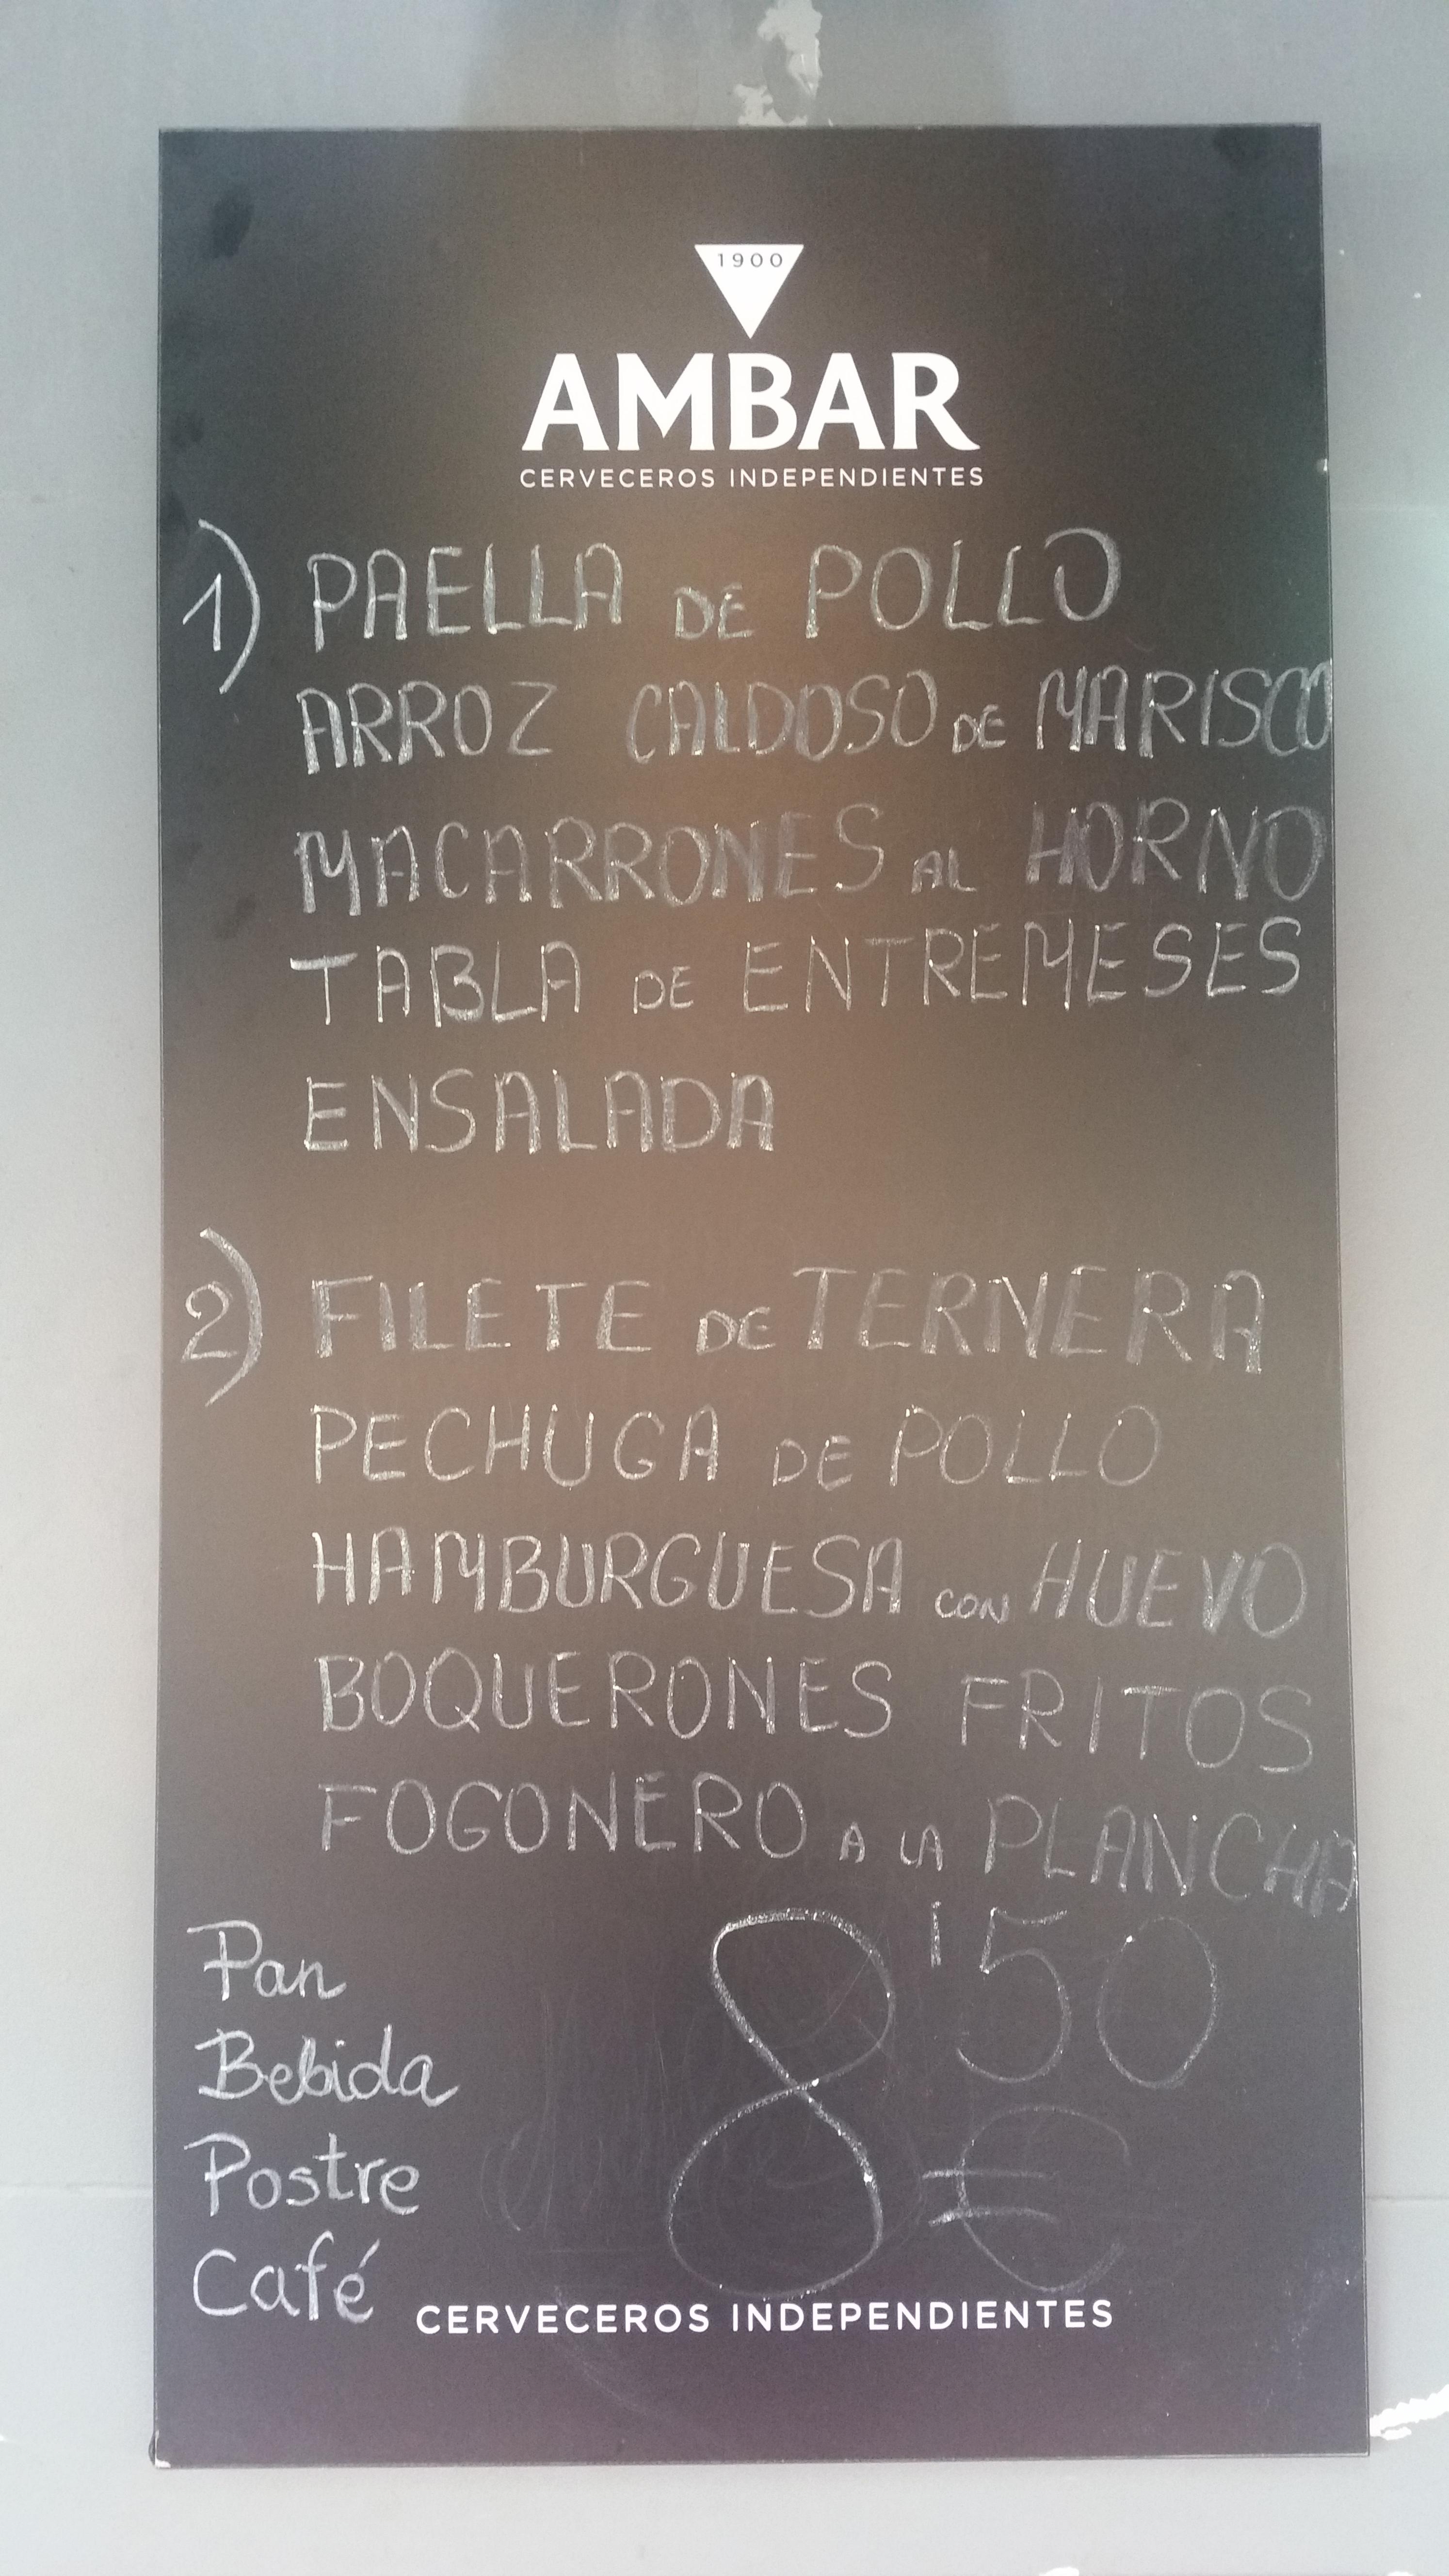 1900
AMBAR
CERVECEROS INDEPENDIENTES
1) PAELLA DE POLLO
ARROZ CALDOSO DE MARISCO
MACARRONES AL HORNO
TABLA DE ENTREMESES
ENSALADA
2) FILETE DE TERNERA
PECHUGA DE POLLO
HAMBURGUESA CON HUEVO
BOQUERONES FRITOS
FOGONERO A LA PLANCHA
Pan
Bebida
Postre
Café
8'50 €
CERVECEROS INDEPENDIENTES